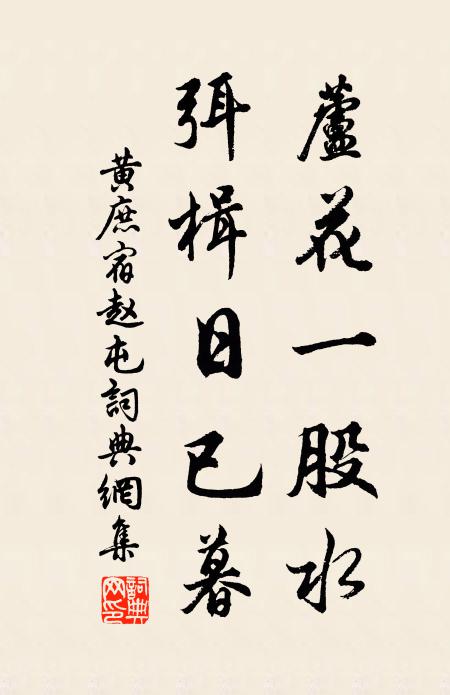 蘆花一股水
弭楫日已暮
黄庶宿赵屯詞典網集
詞典网印